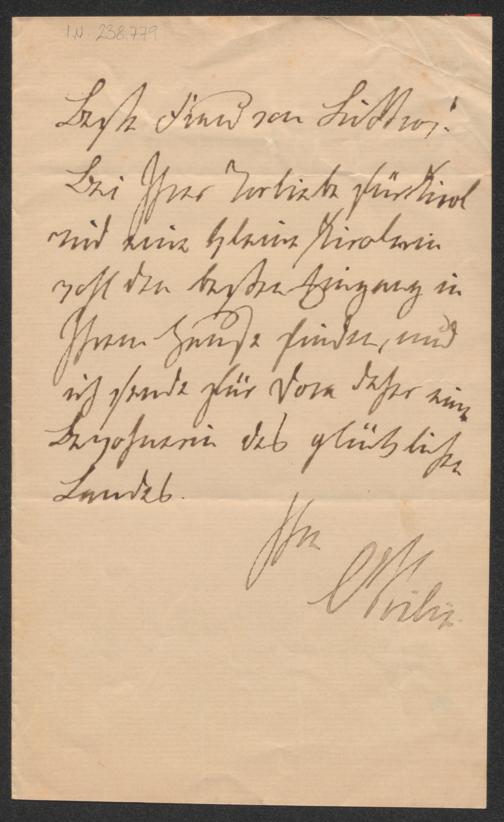 I.N. 238.779
Beste Freud von
Bei Ihrer Vorliebe für Tirol
wird eine kleine Tirolerin
wohl den besten Eingang in
Ihrem Hause finden, und
ich sende für Dora daher eine
Bewohnerin des glücklichen
Landes.
Ihr